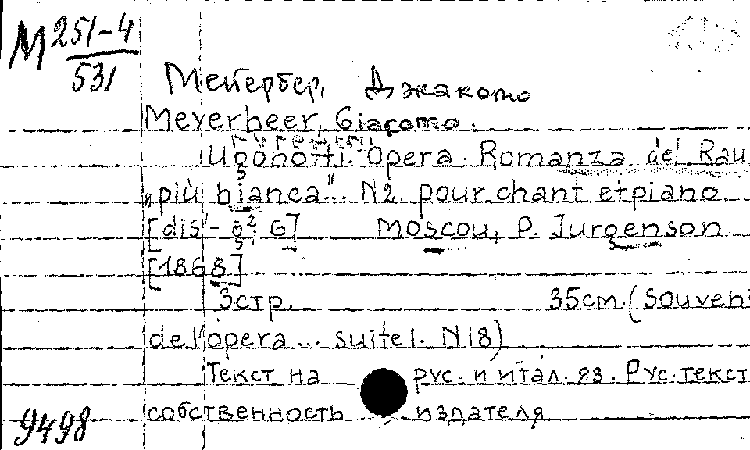 M 251-4
531
Мейербер, Джакомо
Meyerbeer, Giacomo.
Ugonotti. Opera. Romanza del Rau
„più bianca". N2 pour chant et piano
[dis¹- g² G] Moscou, P. Jurgenson
[1868]
3стр. 35см. (Souveni
de l'opera... suite 1. N18)
Текст на рус. и итал. яз. Рус. текст
собственность издателя
9498